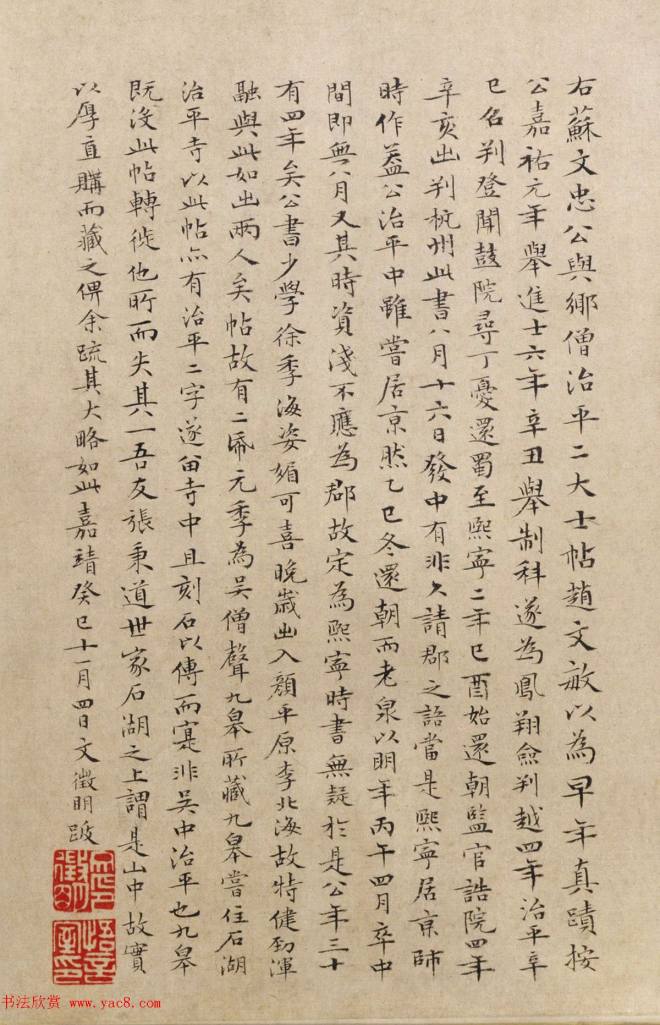 右蘇文忠公與鄉僧治平二大士帖趙文敏以為早年真蹟按
公嘉祐元年舉進士六年辛丑舉制科遂為鳳翔僉判越四年治平辛
巳名判登聞鼓院尋丁憂還蜀至熙寧二年巳酉始還朝監官誥院四年
辛亥出判杭州此書八月十六日發中有非久請郡之語當是熙寧居京師
時作蓋公治平中雖嘗居京然乙巳冬還朝而老泉以明年丙午四月卒中
間即無八月又其時資淺不應為郡故定為熙寧時書無疑於是公年三十
有四年矣公書少學徐季海姿媚可喜晚歲出入顏平原李北海故特健勁渾
融與此如出兩人矣帖故有二帋元季為吳僧聲九皋所藏九皋嘗住石湖
治平寺以此帖亦有治平二字遂留寺中且刻石以傳而寔非吳中治平也九皋
既沒此帖轉徙他所而失其一吾友張秉道世家石湖之上謂是山中故實
以厚直購而藏之俾余疏其大略如此嘉靖癸巳十一月四日文徵明跋
徵明
悟言室印
书法欣赏 http://www.yac8.com